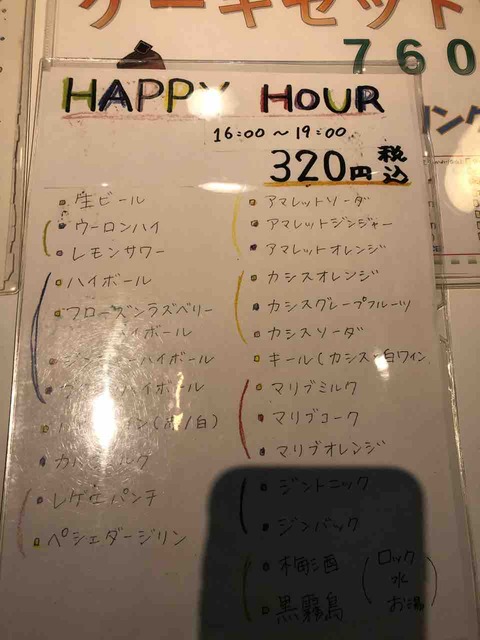 ケーキセット
760
HAPPY HOUR
16:00〜19:00
320円 税込
生ビール
ウーロンハイ
レモンサワー
ハイボール
フローズンラズベリー
イボール
ハイボール
ハイボール
(赤/白)
レゲエパンチ
ペシェダージリン
アマレットソーダ
アマレットジンジャー
アマレットオレンジ
カシスオレンジ
カシスグレープフルーツ
カシスソーダ
キール(カシス+白ワイン
マリブミルク
マリブコーク
マリブオレンジ
ジントニック
ジンバック
梅酒
黒霧島
(ロック
水
お湯)